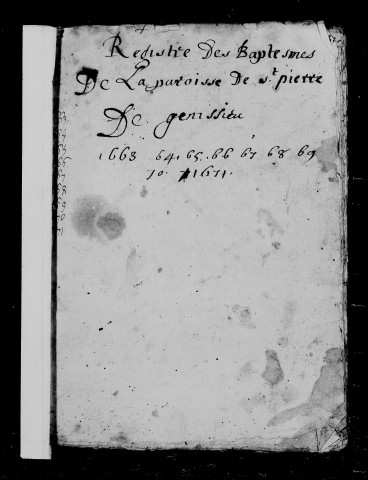 Registre Des Baptesmes
De La paroisse De st pierre
De genissieu
1663 64. 65. 66 67 68 69
70. 1671.